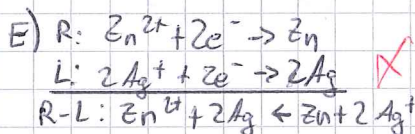 E) R: Zn²⁺ + 2e⁻ → Zn
L: 2Ag⁺ + 2e⁻ → 2Ag
R-L: Zn²⁺ + 2Ag ← Zn + 2Ag⁺